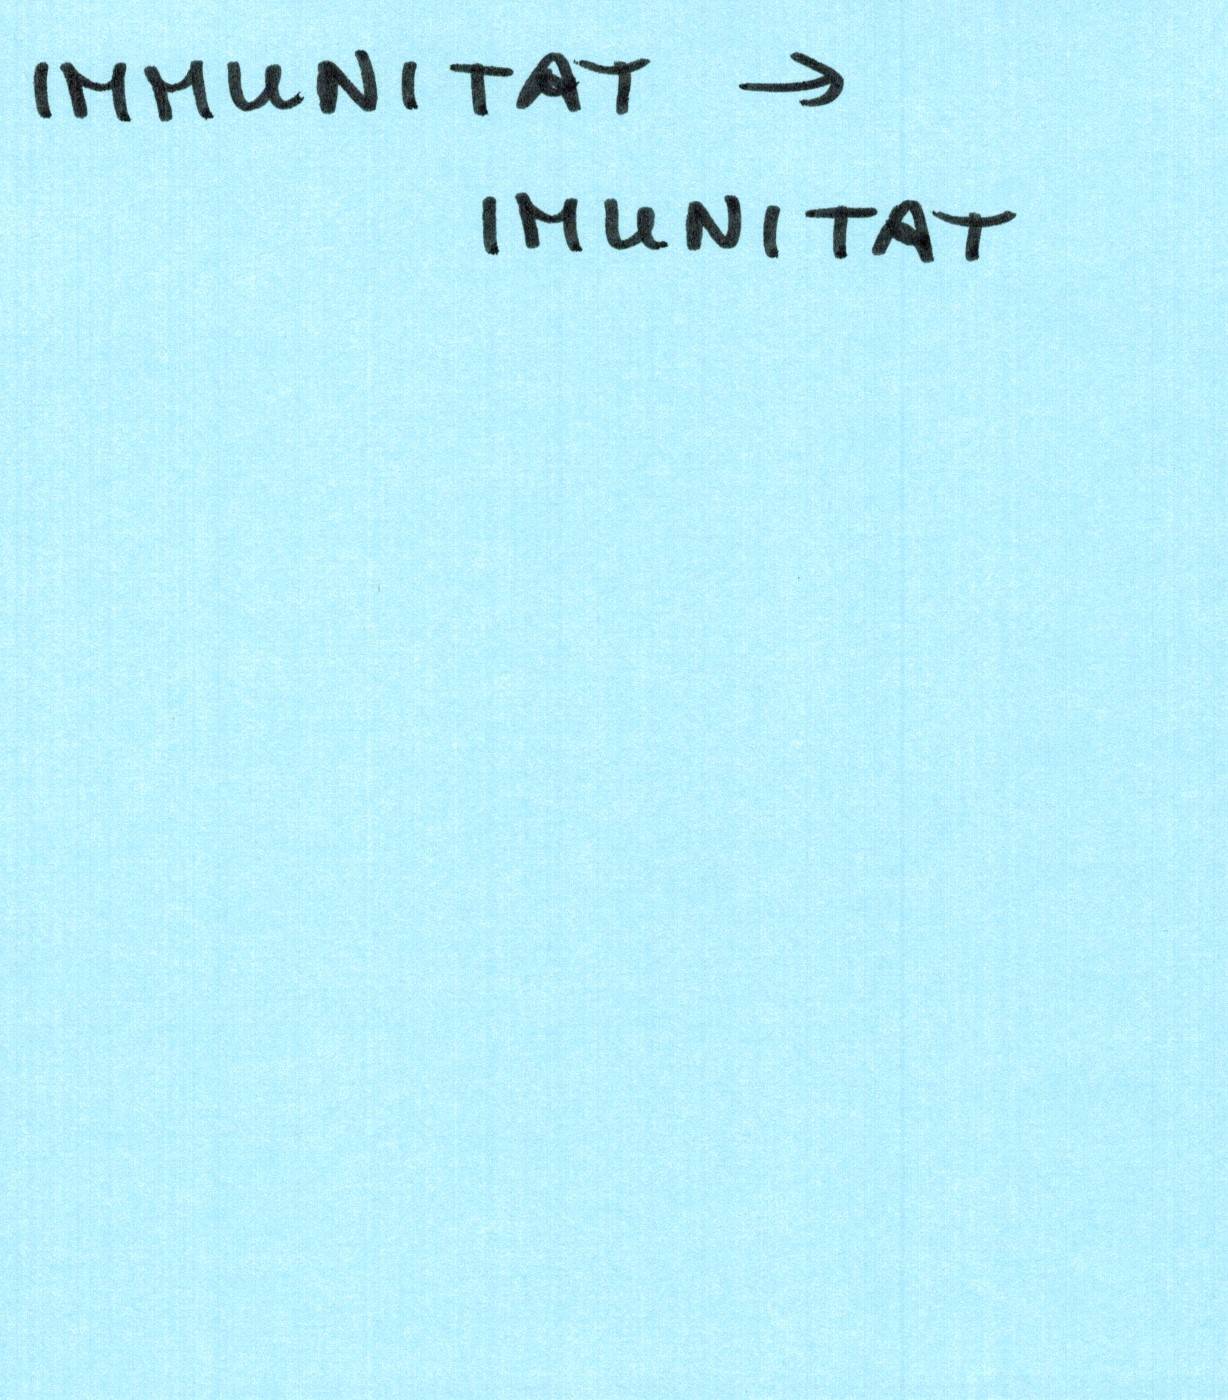 IMMUNITAT →
IMUNITAT